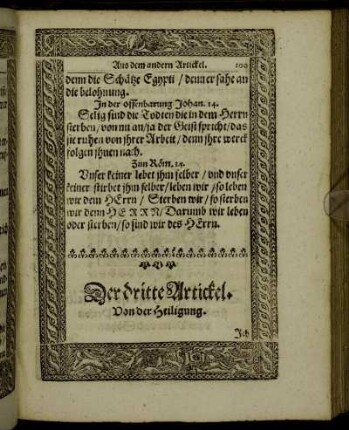 Aus dem andern Artickel. 100
denn die Schätze Egypti / denn er sahe an
die belohnung.
In der offenbarung Johan. 14.
Selig sind die Todten die in dem Herrn
sterben / von nu an / ja der Geist spricht / das
sie ruhen von jhrer Arbeit / denn jhre werck
folgen jhnen nach.
Zun Röm. 14.
Unser keiner lebet jhm selber / vnd vnser
keiner stirbet jhm selber / leben wir / so leben
wir dem HErrn / Sterben wir / so sterben
wir dem HERRN / Darumb wir leben
oder sterben / so sind wir des HErrn.
Der dritte Artickel.
Von der Heiligung.
Ich